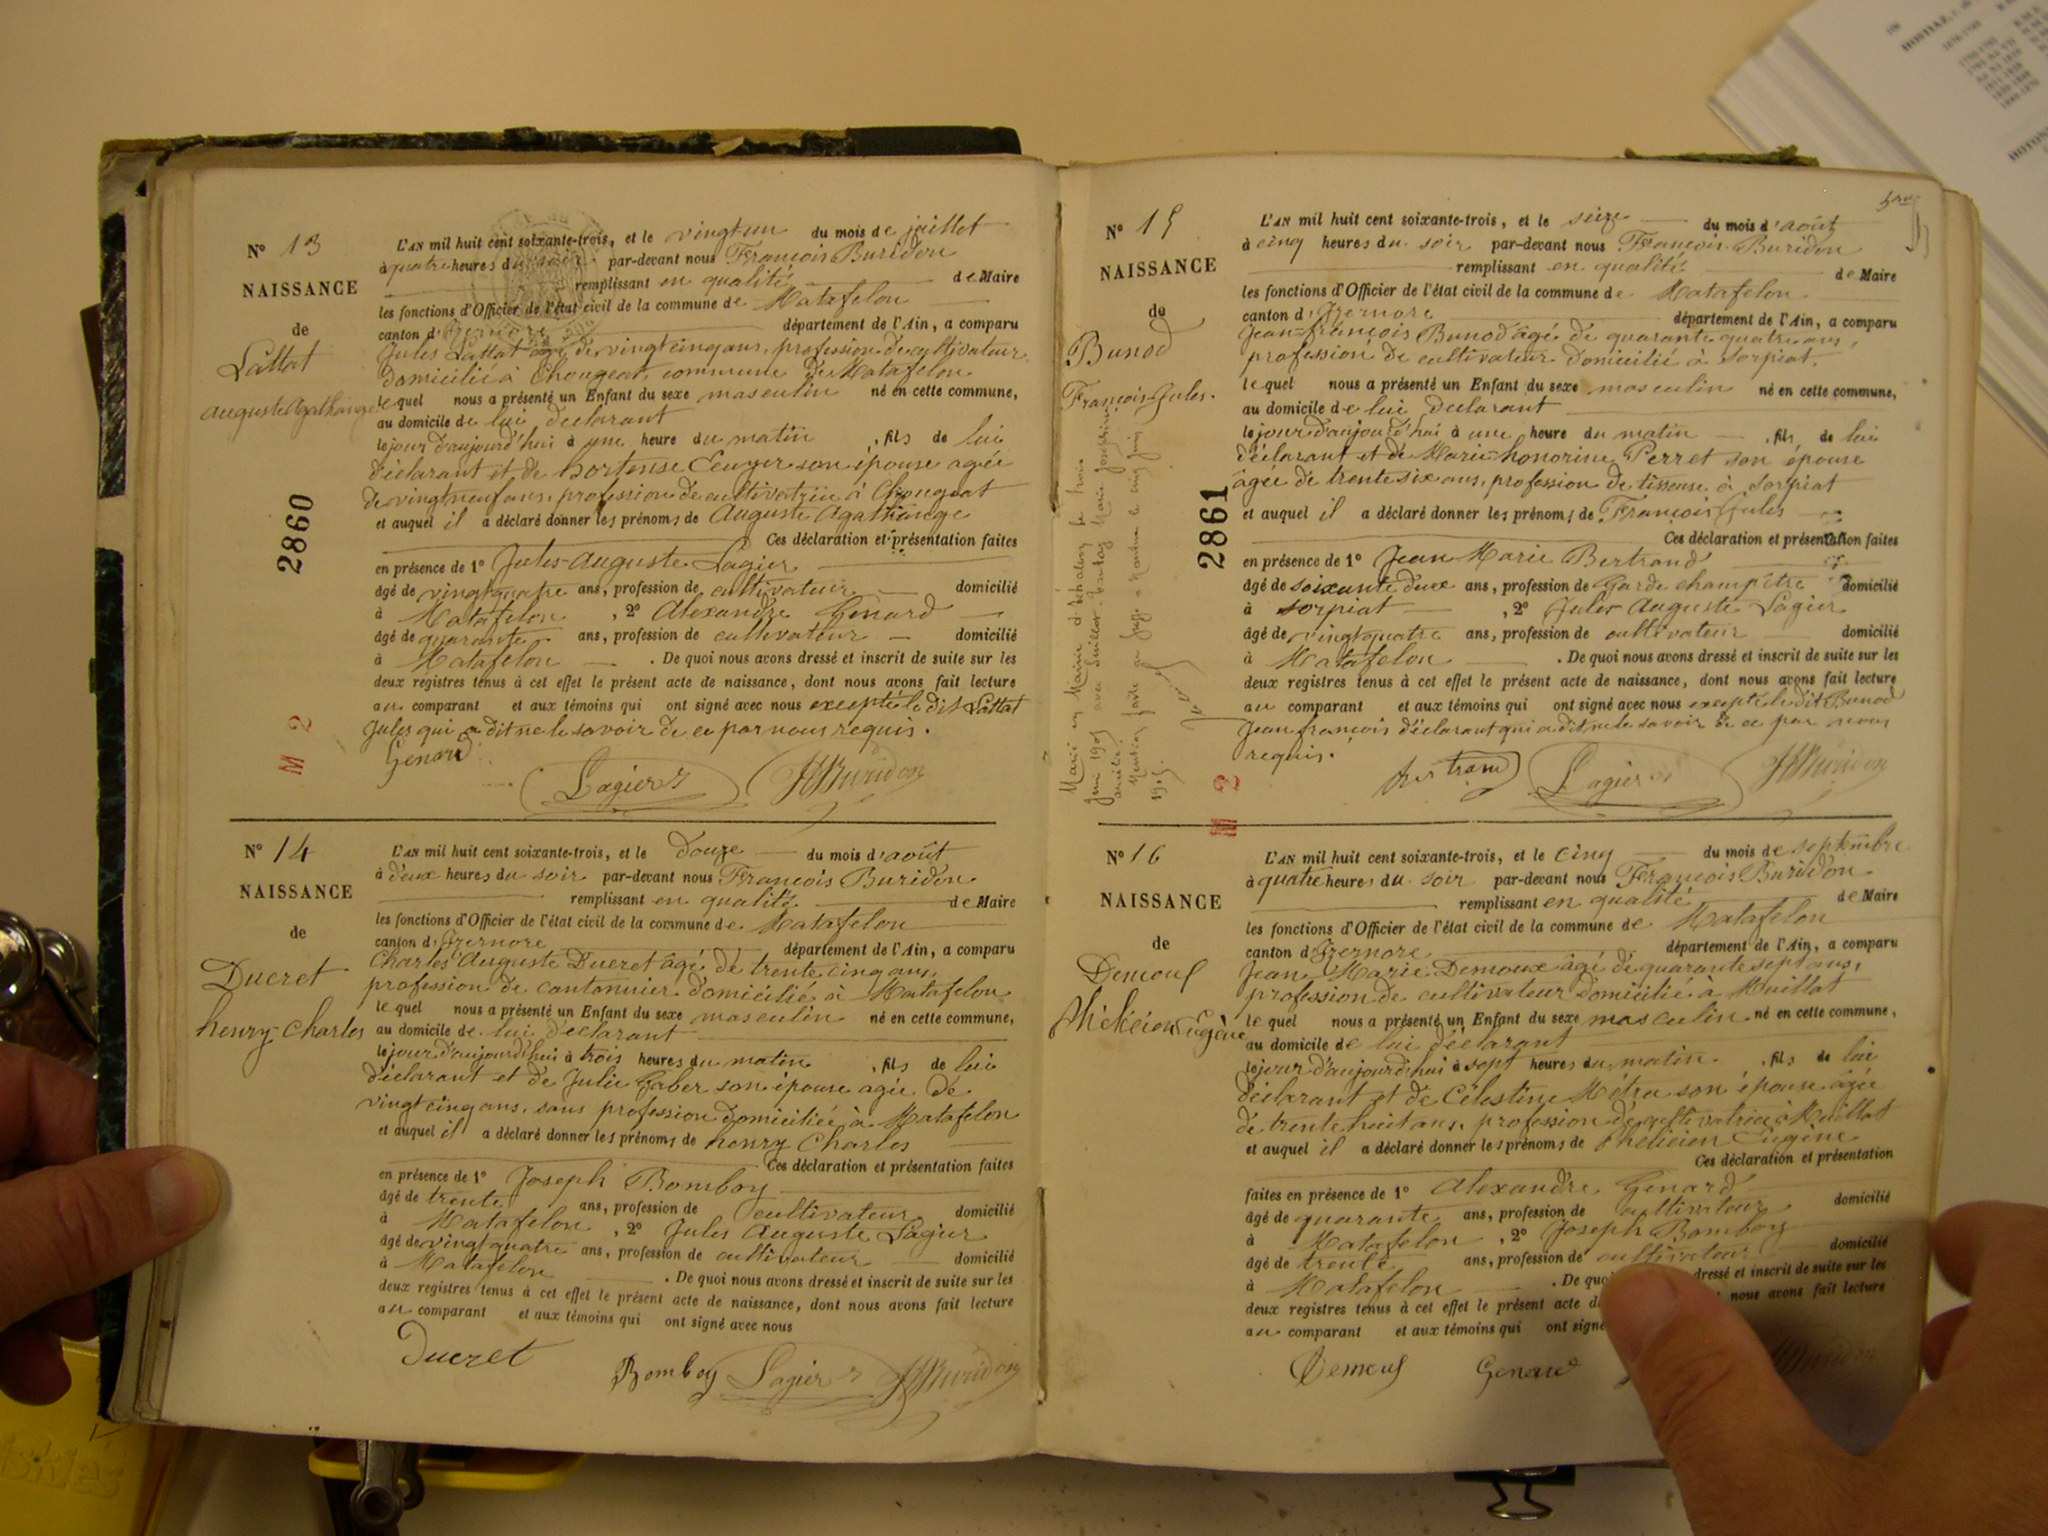 N° 13
NAISSANCE
de
Lattat
Auguste Agathange
2860
M 2
L'AN mil huit cent soixante-trois, et le vingt un du mois de juillet
à quatre heures du soir par-devant nous François Buridon
remplissant en qualité de Maire
les fonctions d'Officier de l'état civil de la commune de Matafelon
canton d'Izernore département de l'Ain, a comparu
Jules Lattat âgé de vingt cinq ans, profession de cultivateur
domicilié à Chongeat, commune de Matafelon
le quel nous a présenté un Enfant du sexe masculin né en cette commune,
au domicile de lui déclarant
le jour d'aujourd'hui à une heure du matin, fils de lui
déclarant et de hortense son épouse agée
de vingt neuf ans, profession de cultivatrice à Chongeat
et auquel il a déclaré donner les prénoms de Auguste Agathange
Ces déclaration et présentation faites
en présence de 1° Jules-Auguste Lagier
âgé de vingt quatre ans, profession de cultivateur domicilié
à Matafelon, 2° Alexandre Genard
âgé de quarante ans, profession de cultivateur domicilié
à Matafelon. De quoi nous avons dressé et inscrit de suite sur les
deux registres tenus à cet effet le présent acte de naissance, dont nous avons fait lecture
au comparant et aux témoins qui ont signé avec nous excepté le dit Lattat
Jules qui a dit ne le savoir de ce par nous requis.
Genard Lagier Buridon
N° 14
NAISSANCE
de
Ducret
henry-Charles
L'AN mil huit cent soixante-trois, et le douze du mois d'août
à deux heures du soir par-devant nous François Buridon
remplissant en qualité de Maire
les fonctions d'Officier de l'état civil de la commune de Matafelon
canton d'Izernore département de l'Ain, a comparu
Charles Auguste Ducret âgé de trente cinq ans,
profession de cantonnier domicilié à Matafelon
le quel nous a présenté un Enfant du sexe masculin né en cette commune,
au domicile de lui déclarant
le jour d'aujourd'hui à trois heures du matin, fils de lui
déclarant et de Julie Gaber son épouse agée de
vingt cinq ans, sans profession domiciliée à Matafelon
et auquel il a déclaré donner les prénoms de henry Charles
Ces déclaration et présentation faites
en présence de 1° Joseph Bomboy
âgé de trente ans, profession de cultivateur domicilié
à Matafelon, 2° Jules Auguste Lagier
âgé de vingt quatre ans, profession de cultivateur domicilié
à Matafelon. De quoi nous avons dressé et inscrit de suite sur les
deux registres tenus à cet effet le présent acte de naissance, dont nous avons fait lecture
au comparant et aux témoins qui ont signé avec nous
Ducret Bomboy Lagier Buridon
N° 15
NAISSANCE
de
Bunod
François Jules.
2861
M 2
Marié en Mairie d' le trois
Juin 1905 avec Marie Joséphine
Mention faite par le cinq juin
1905.
L'AN mil huit cent soixante-trois, et le seize du mois d'août
à cinq heures du soir par-devant nous François Buridon
remplissant en qualité de Maire
les fonctions d'Officier de l'état civil de la commune de Matafelon
canton d'Izernore département de l'Ain, a comparu
Jean-françois Bunod âgé de quarante quatre ans,
profession de cultivateur domicilié à Sorpiat.
le quel nous a présenté un Enfant du sexe masculin né en cette commune,
au domicile de lui déclarant
le jour d'aujourd'hui à une heure du matin, fils de lui
déclarant et de Marie-honorine Perret son épouse
âgée de trente six ans, profession de tisseuse à Sorpiat
et auquel il a déclaré donner les prénoms de François Jules
Ces déclaration et présentation faites
en présence de 1° Jean-Marie Bertrand
âgé de soixante deux ans, profession de Garde champêtre domicilié
à Sorpiat, 2° Jules Auguste Lagier
âgé de vingt quatre ans, profession de cultivateur domicilié
à Matafelon. De quoi nous avons dressé et inscrit de suite sur les
deux registres tenus à cet effet le présent acte de naissance, dont nous avons fait lecture
au comparant et aux témoins qui ont signé avec nous excepté le dit Bunod
Jean françois déclarant qui a dit ne le savoir de ce par nous
requis.
Bertrand Lagier Buridon
N° 16
NAISSANCE
de
Demoux
Phélicien Eugène
L'AN mil huit cent soixante-trois, et le cinq du mois de septembre
à quatre heures du soir par-devant nous François Buridon
remplissant en qualité de Maire
les fonctions d'Officier de l'état civil de la commune de Matafelon
canton d'Izernore département de l'Ain, a comparu
Jean Marie Demoux âgé de quarante sept ans,
profession de cultivateur domicilié à Maillat
le quel nous a présenté un Enfant du sexe masculin né en cette commune,
au domicile de lui déclarant
le jour d'aujourd'hui à sept heures du matin, fils de lui
déclarant et de Célestine Métra son épouse âgée
de trente huit ans, profession de cultivatrice à Maillat
et auquel il a déclaré donner les prénoms de Phélicien Eugène
Ces déclaration et présentation
faites en présence de 1° Alexandre Genard
âgé de quarante ans, profession de cultivateur domicilié
à Matafelon, 2° Joseph Bomboy
âgé de trente ans, profession de cultivateur domicilié
à Matafelon. De quoi dressé et inscrit de suite sur les
deux registres tenus à cet effet le présent acte nous avons fait lecture
au comparant et aux témoins qui ont signé
Demoux Genard Buridon